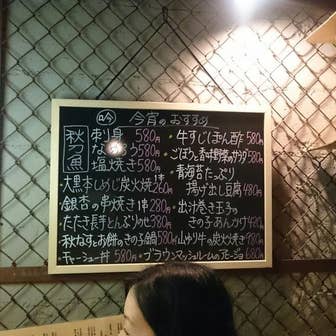 吟 今宵のおすすめ
秋刀魚
刺身 580円
なめろう 580円
塩焼き 580円
大黒本しめじ炭火焼 1本260円
銀杏の串焼き 1串280円
たたき長芋とんぶりのせ 380円
秋なすとお餅のきのこ鍋 580円
チャーシュー丼 580円
・牛すじてぼん酢 580円
・ごぼうと香味野菜のサラダ 580円
・青海苔たっぷり
揚げ出し豆腐 480円
・出汁巻き玉子の
きのこあんかけ 480円
山ゆり牛の炭火焼き 980円
・ブラウンマッシュルームのアヒージョ 680円